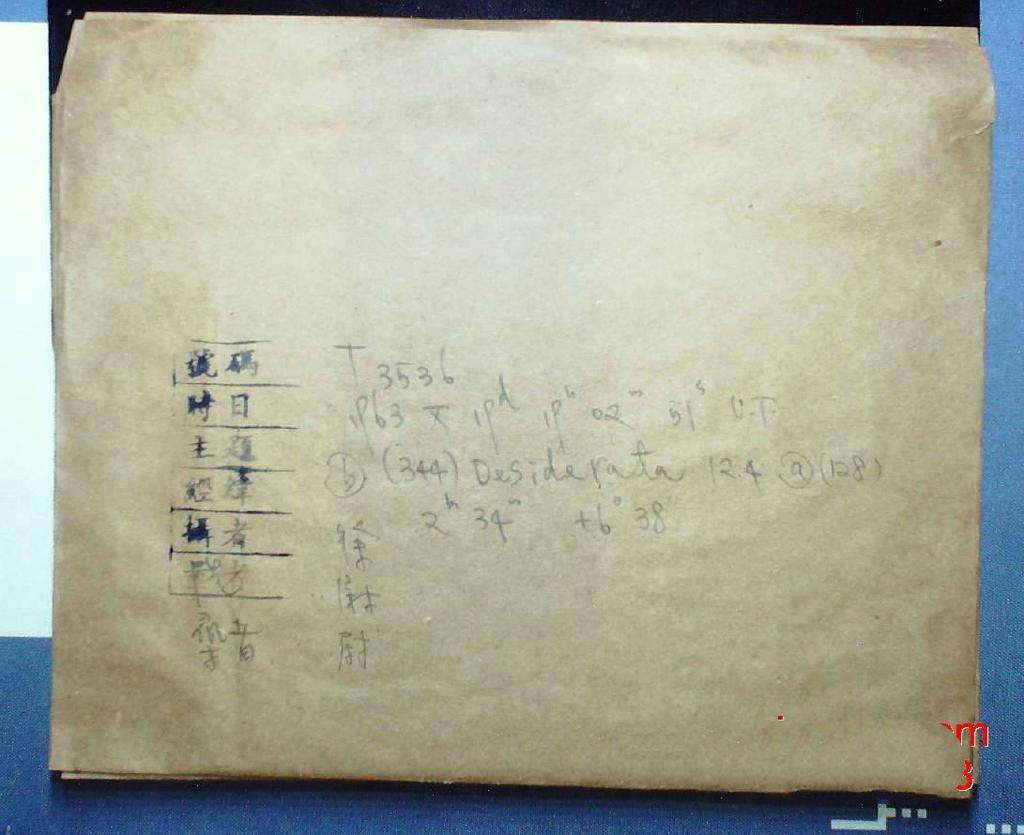 號碼 T 3536
時日 1963 X 19ᵈ 19ʰ 02ᵐ 51ˢ U.T.
主題 ⓑ (344) Desiderata 12.4 ⓐ (128)
經緯 2ʰ 34ᵐ +6° 38'
攝者 徐
者
尉